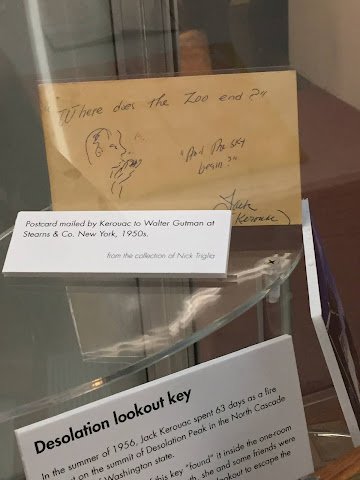 "Where does the Zoo end?"
"And the sky
begin?"
Jack
Kerouac
Postcard mailed by Kerouac to Walter Gutman at
Stearns & Co. New York, 1950s.
from the collection of Nick Triglia
Desolation lookout key
In the summer of 1956, Jack Kerouac spent 63 days as a fire
on the summit of Desolation Peak in the North Cascade
Washington state.
of this key "found" it inside the one-room
she and some friends were
lookout to escape the